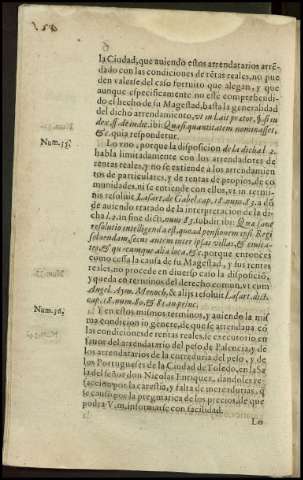 la Ciudad, que auiendo estos arrendatarios arrē-
dado con las condiciones de rētas reales, no pue
den valerse del caso fortuito que alegan, y que
aunque especificamente no esté comprehendi-
do el hecho de su Magestad, basta la generalidad
del dicho arrendamiento, vt in l. ait prætor, §. si iu
dex. ff. de iudic. ibi: Quasi quantitatem nominasset,
&c. quia respondetur.
Num. 35.
Lo vno, porque la disposicion de la dicha l. 2.
habla limitadamente con los arrendadores de
rentas reales, y no se estiende a los arrendamien
tos de particulares, y de rentas de propios, de co
munidades, ni se entiende con ellos, vt in termi-
nis resoluit Lasart. de Gabel. cap. 18. num. 83. a dō
de auiendo tratado de la interpretacion de la di-
cha l. 2. in fine dict. num 83. subdit ibi: Quæ sanè
resolutio intelligenda est, quoad pensionem ipsi Regi
soluendam, secus autem inter ipsas villas, & ciuita-
tes, & quæcumque alia loca, &c. porque entonces
como cessa la causa de su Magestad, y sus rentas
reales, no procede en diuerso caso la disposiciō,
y queda en terminos del derecho comun, vt cum
Angel. Aym. Menoch. & alijs resoluit Lasart. dict.
cap. 18. num. 80. & 81. in princ.
Num. 36.
Y en estos mismos terminos, y auiendo la mis
ma condicion general, de que se arrendaua cō
las condiciones de rentas reales, se executorió en
fauor del arrendatario del peso de Palencia, y de
los arrendatarios de la correduria del peso, y de
los Portugueses de la Ciudad de Toledo, en la Sa
la del señor don Nicolas Enriquez, dandoles re-
faccion por la carestia, y falta de mercadurias, q̄
se causó por la pregmatica de los precios, de que
podrà V. m. informarse con facilidad.
Lo